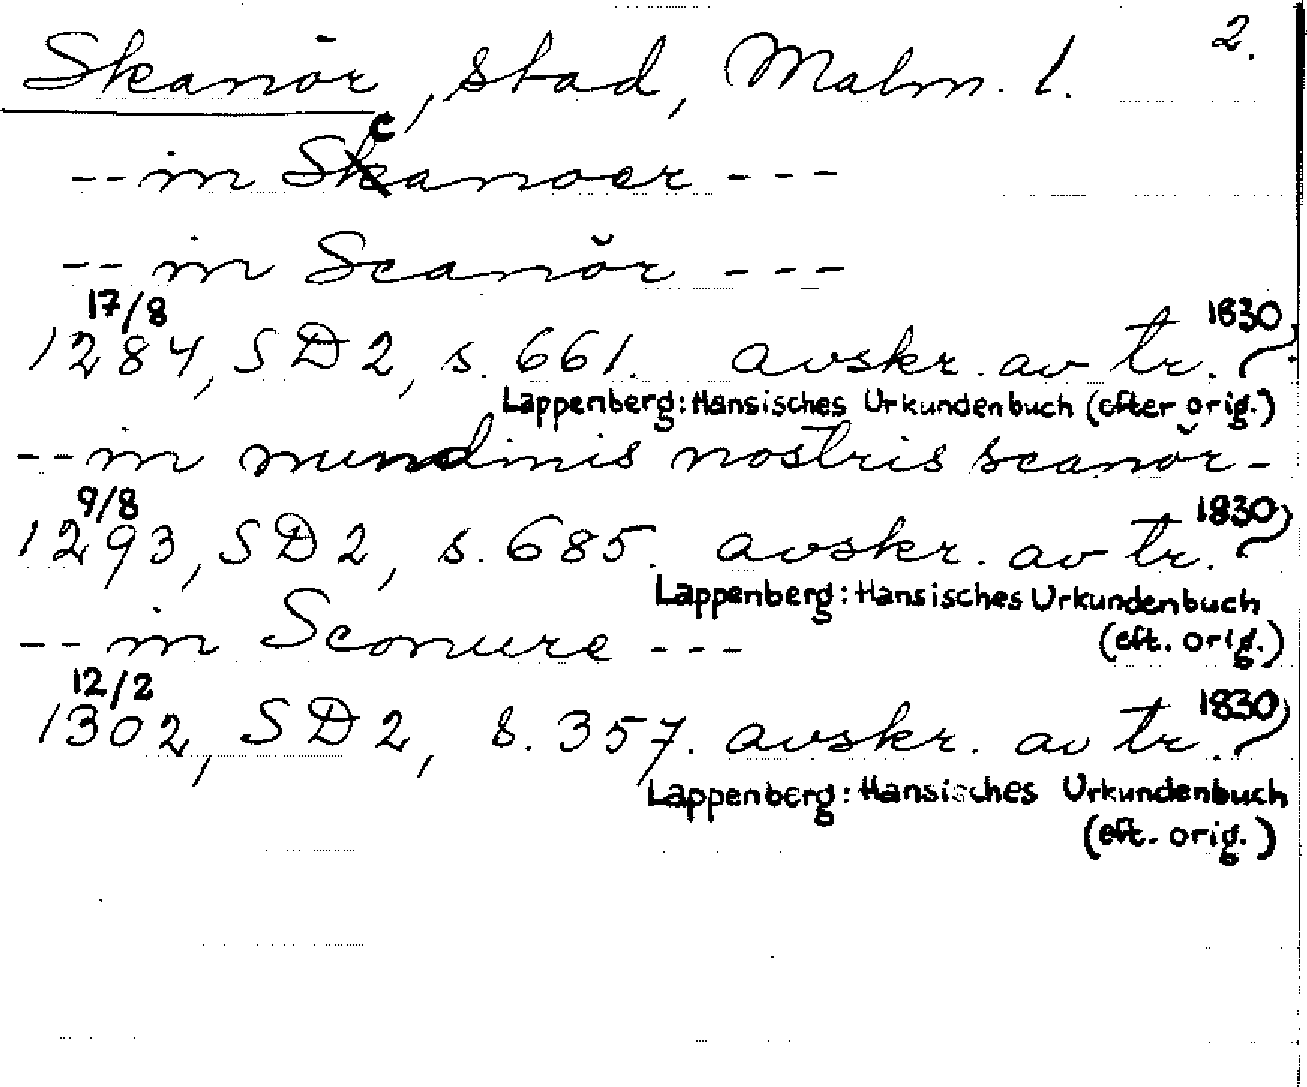 2.
Skanör, stad, Malm. l.
-- in Scanoer ---
-- in Scanör ---
17/8
1284, SD 2, s. 661. avskr. av tr. 1830
Lappenberg: Hansisches Urkundenbuch (efter orig.)
-- in nundinis nostris scanör -
9/8
1293, SD 2, s. 685. avskr. av tr. 1830
Lappenberg: Hansisches Urkundenbuch
(eft. orig.)
-- in Sconure ---
12/2
1302, SD 2, s. 357. avskr. av tr. 1830
Lappenberg: Hansisches Urkundenbuch
(eft. orig.)